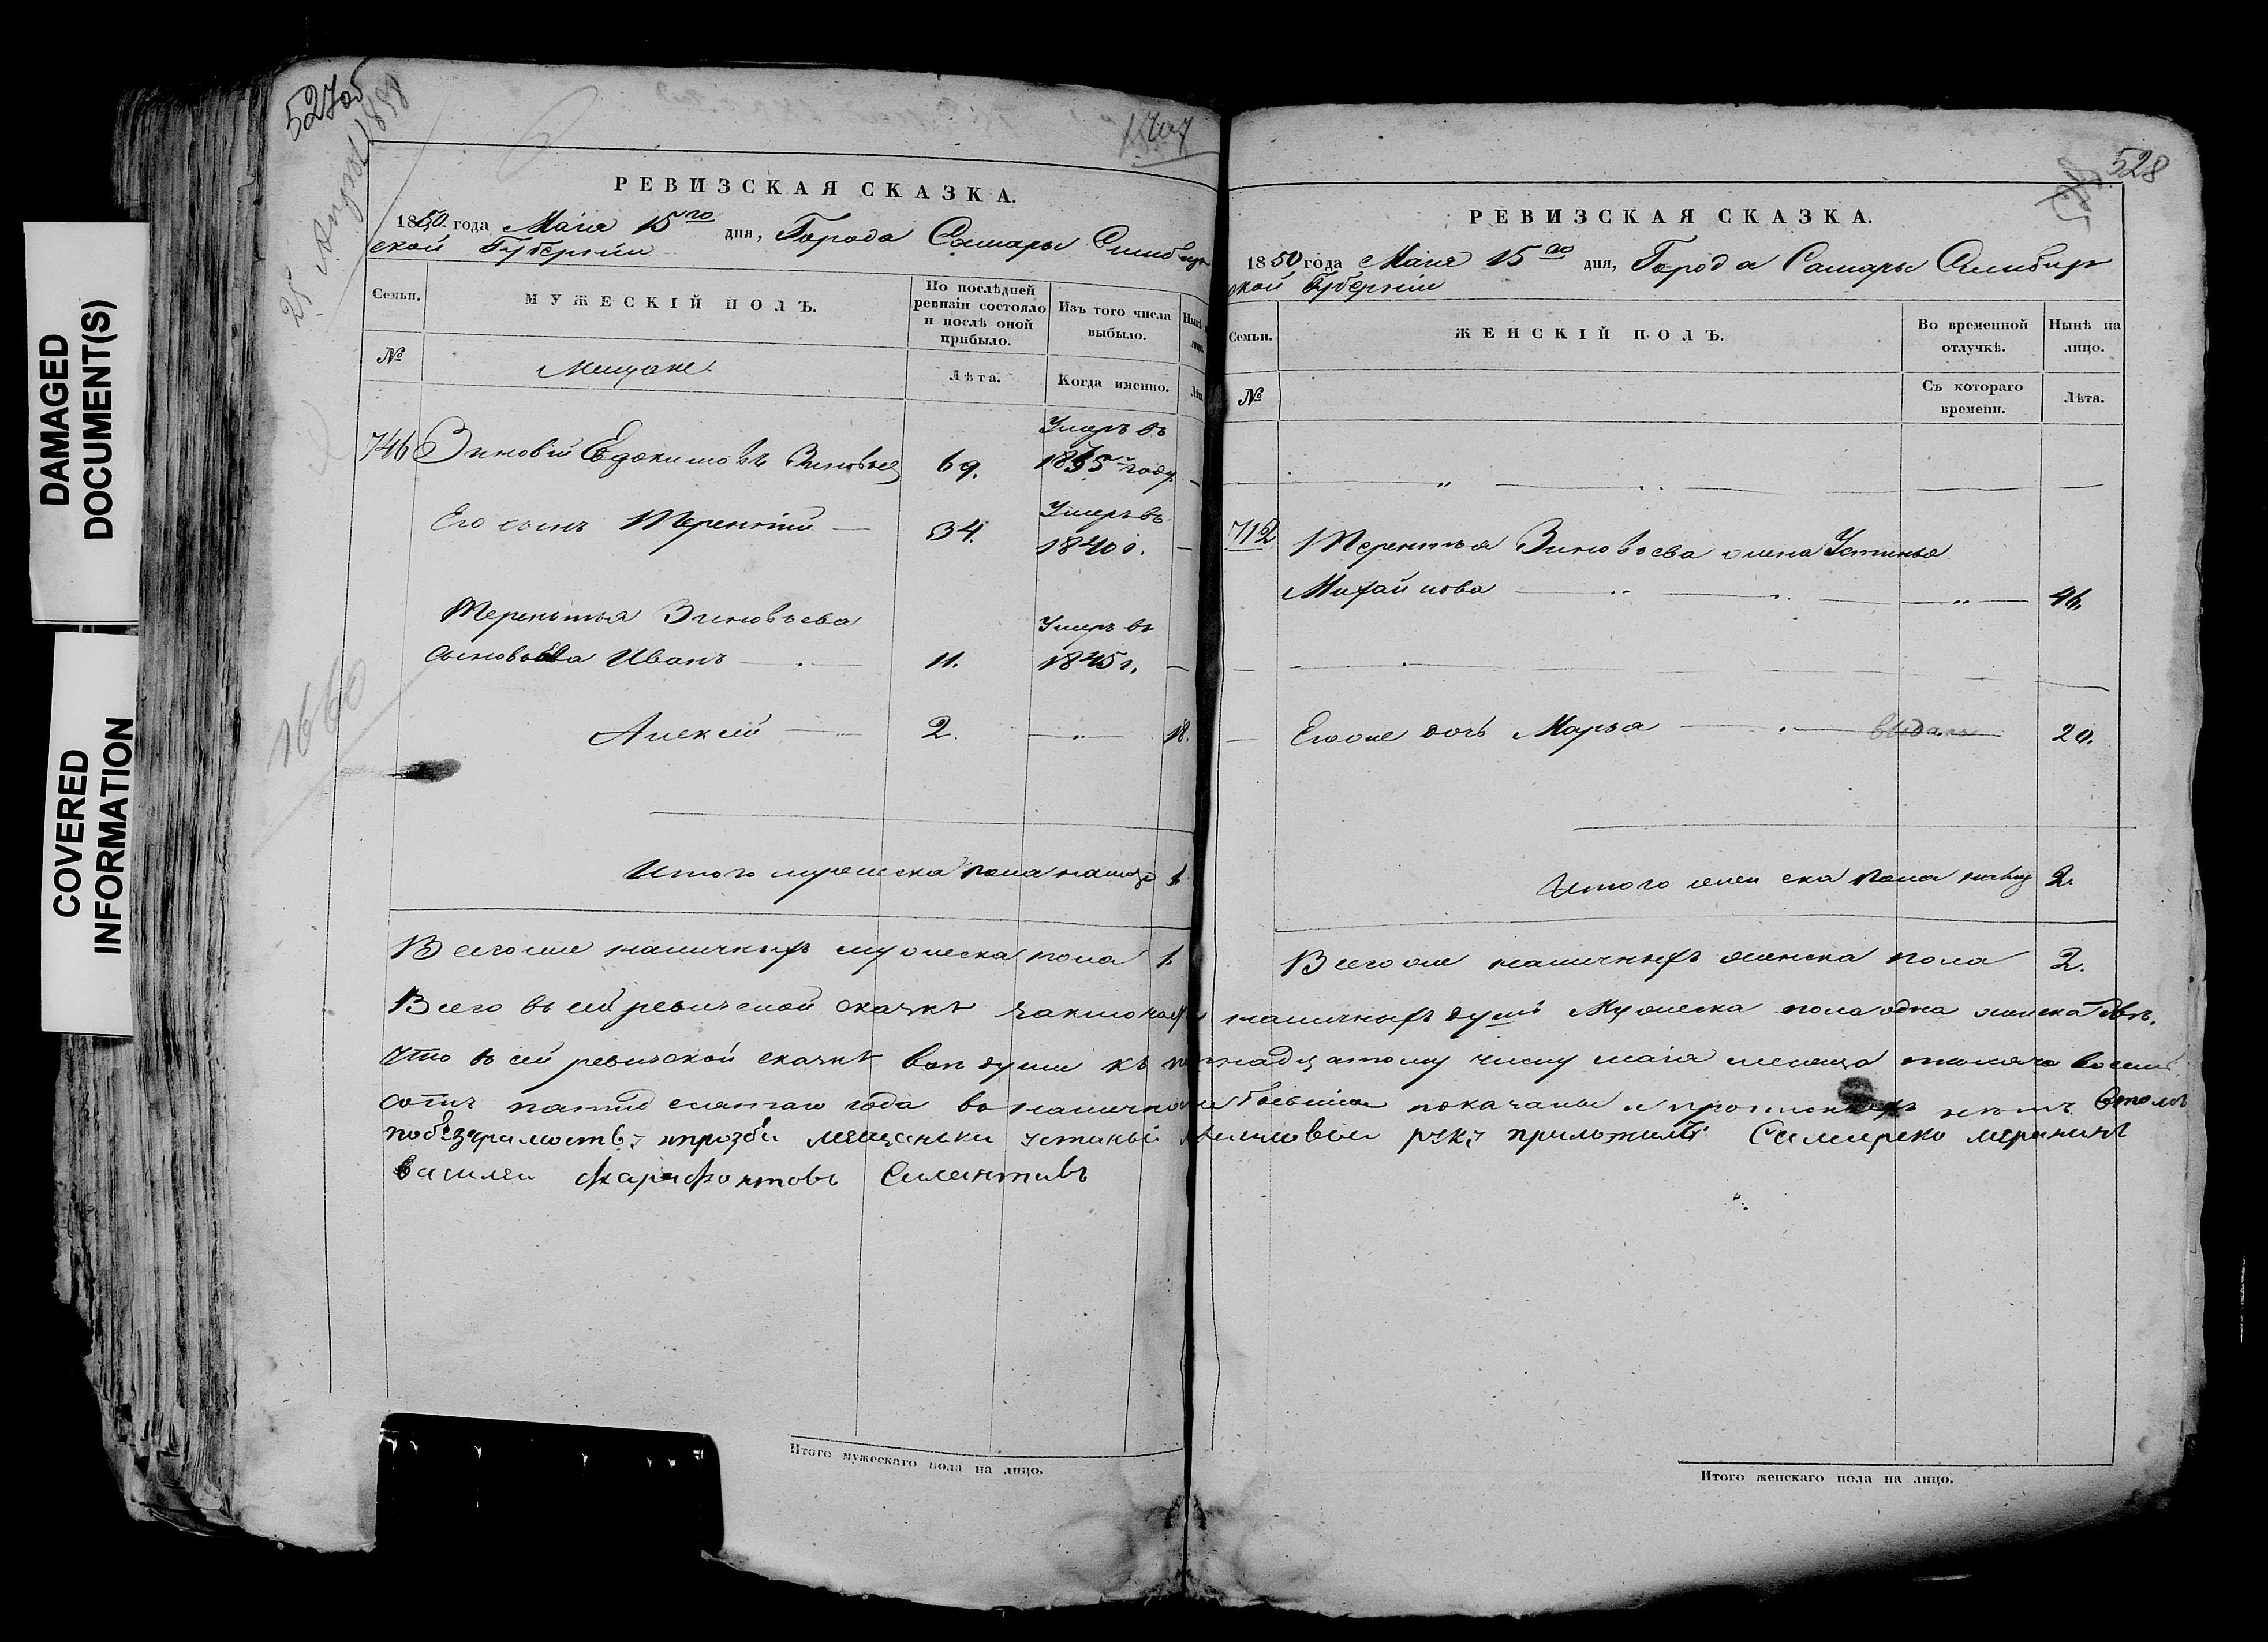 DAMAGED
DOCUMENT(S)
COVERED
INFORMATION
527об
РЕВИЗСКАЯ СКАЗКА.
1850 года Маія 15го дня, Города Самары Симбир
ской Губерніи
Семьи.
МУЖЕСКІЙ ПОЛЪ.
По послѣдней
ревизіи состояло
и послѣ оной
прибыло.
Изъ того числа
выбыло.
№
Мещане.
Лѣта.
Когда именно.
746 Зиновій Евдокимовъ Зиновьев 69. Умеръ въ
1835 году
Его сынъ Терентій — 34. Умеръ въ
1840 г.
Терентья Зиновьева
сыновья Иванъ — 11. Умеръ въ
1845 г. —
Алексей — 2. — 18.
Итого мужеска пола налицо 1.
Всего же наличныхъ мужеска пола 1.
1660
Итого мужескаго пола на лицо.
528
РЕВИЗСКАЯ СКАЗКА.
1850 года Маія 15го дня, Города Самары Симбир
ской Губерніи
Семьи.
ЖЕНСКІЙ ПОЛЪ.
Во временной
отлучкѣ.
Нынѣ на
лицо.
№
Съ котораго
времени.
Лѣта.
712 Терентья Зиновьева жена Устинья
Михайлова — 46.
Егоже дочь Марья — выдана 20.
Итого женска пола налицо 2.
Всего же наличныхъ женска пола 2.
Всего въ сей ревизской сказкѣ наличныхъ душъ Мужеска пола одна женска двѣ.
Что въ сей ревизской сказкѣ все души къ пятнадцатому числу маія месяца тысяча восемь
сотъ пятидесятаго года въ наличности бывшія показаны и прописныхъ нетъ Втомъ
побезграмотву ипрозби мещаньки устиньи руку приложилъ
василеи
Итого женскаго пола на лицо.